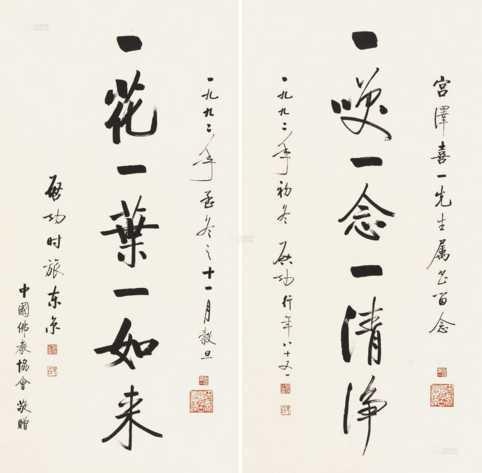 宫澤喜一先生属書留念
一咲一念一清浄
一九九二年初冬 啓功 行年八十又一
一九九二年孟冬之十一月穀旦
一花一葉一如来
啓功时旅东京
中國佛教協會 敬贈